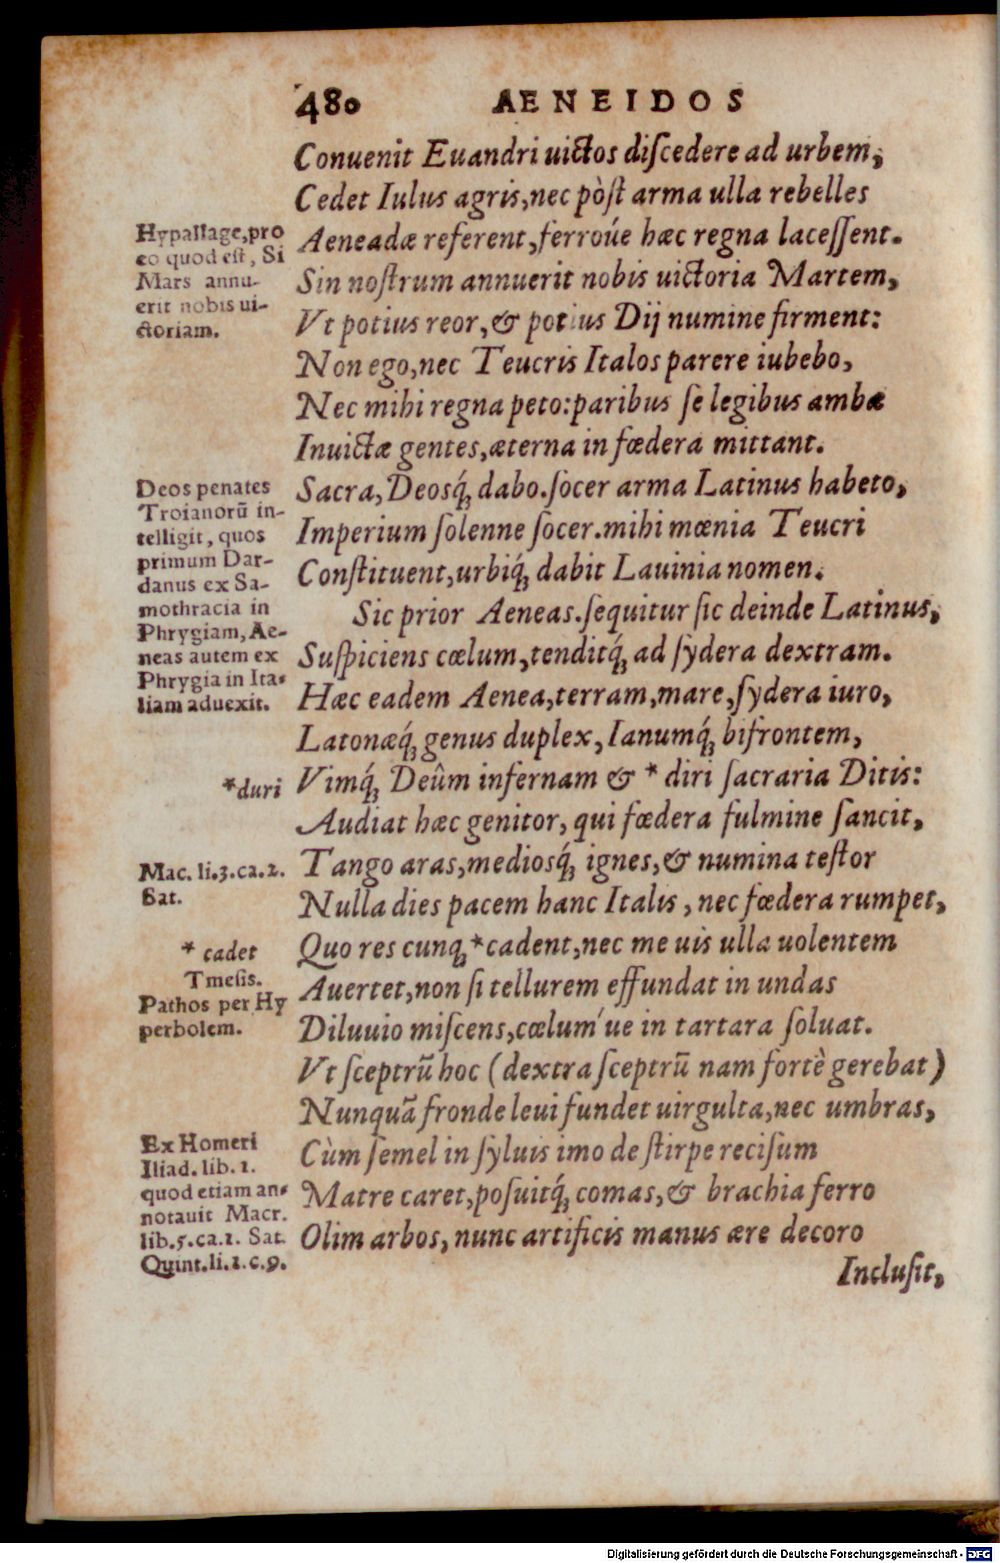 480 AENEIDOS
Conuenit Euandri uictos diſcedere ad urbem,
Cedet Iulus agris, nec pòſt arma ulla rebelles
Aeneadæ referent, ferroúe hæc regna laceſſent.
Sin noſtrum annuerit nobis uictoria Martem,
Vt potius reor, & potius Dij numine firment:
Non ego, nec Teucris Italos parere iubebo,
Nec mihi regna peto: paribus ſe legibus ambæ
Inuictæ gentes, æterna in fœdera mittant.
Sacra, Deosq́; dabo. ſocer arma Latinus habeto,
Imperium ſolenne ſocer. mihi mœnia Teucri
Conſtituent, urbiq́; dabit Lauinia nomen.
Sic prior Aeneas. ſequitur ſic deinde Latinus,
Suſpiciens cœlum, tenditq́; ad ſydera dextram.
Hæc eadem Aenea, terram, mare, ſydera iuro,
Latonæq́; genus duplex, Ianumq́; bifrontem,
Vimq́; Deûm infernam & * diri ſacraria Ditis:
Audiat hæc genitor, qui fœdera fulmine ſancit,
Tango aras, mediosq́; ignes, & numina teſtor
Nulla dies pacem hanc Italis, nec fœdera rumpet,
Quo res cunq; *cadent, nec me uis ulla uolentem
Auertet, non ſi tellurem effundat in undas
Diluuio miſcens, cœlum'ue in tartara ſoluat.
Vt ſceptrũ hoc (dextra ſceptrũ nam fortè gerebat)
Nunquã fronde leui fundet uirgulta, nec umbras,
Cùm ſemel in ſyluis imo de ſtirpe reciſum
Matre caret, poſuitq́; comas, & brachia ferro
Olim arbos, nunc artificis manus ære decoro
Incluſit,
Hypallage, pro
eo quod eſt, Si
Mars annu-
erit nobis ui-
ctoriam.
Deos penates
Troianorũ in-
telligit, quos
primum Dar-
danus ex Sa-
mothracia in
Phrygiam, Ae-
neas autem ex
Phrygia in Ita-
liam aduexit.
*duri
Mac. li.3.ca.2.
Sat.
* cadet
Tmeſis.
Pathos per Hy
perbolem.
Ex Homeri
Iliad. lib. 1.
quod etiam an-
notauit Macr.
lib.5.ca.1. Sat.
Quint.li.1.c.9.
Digitalisierung gefördert durch die Deutsche Forschungsgemeinschaft - DFG